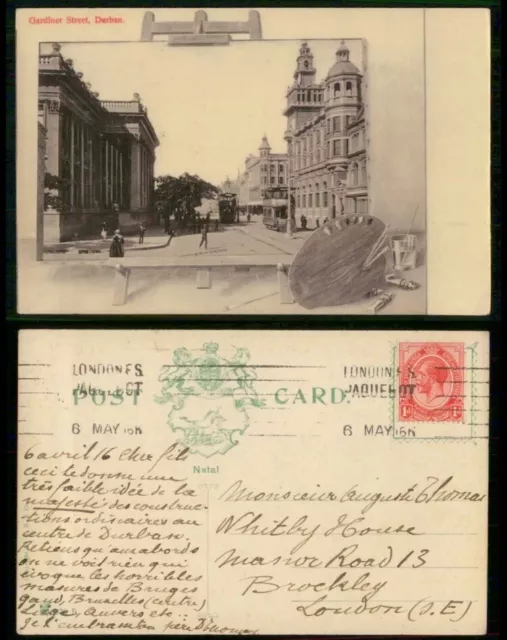 Gardiner Street, Durban.
LONDON F.S.
PAQUEBOT
6 MAY 16
LONDON F.S.
PAQUEBOT
6 MAY 16
POST CARD.
Natal
6 avril 16 Cher fils
ceci te donne une
très faible idée de la
majesté des construc-
tions ordinaires au
centre de Durban.
on ne voit rien qui
évoque les horribles
masures de Bruges
gand, Bruxelles (centre)
Liège Anvers etc..
je t'embrasse ton père Thomas
Monsieur Auguste Thomas
Whitby House
Manor Road 13
Brockley
London (S.E)